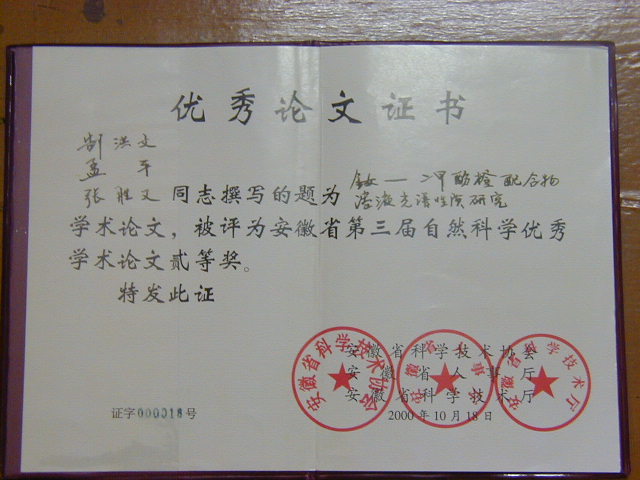 优秀论文证书
郜洪文
孟平
张胜义 同志撰写的题为 钕—二甲酚橙配合物
溶液光谱性质研究
学术论文，被评为安徽省第三届自然科学优秀
学术论文贰等奖。
特发此证
安徽省科学技术协会
安徽省人事厅
安徽省科学技术厅
证字000018号
2000年10月18日
安徽省科学技术协会
安徽省人事厅
安徽省科学技术厅